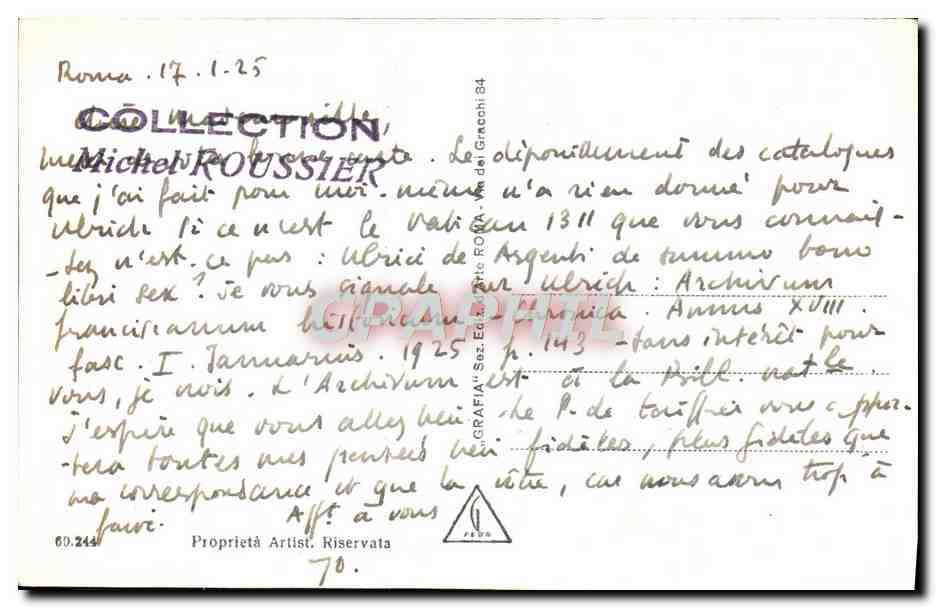 Roma . 17 . 1 - 25
COLLECTION
Michel ROUSSIER
carte . Le dépouillement des catalogues
que j'ai fait pour moi-même n'a rien donné pour
Ulrich si ce n'est le Vatican 1311 que vous connais-
-sez n'est-ce pas : Ulrici de Argenti de summo bono
libri sex ? Je vous signale sur Ulrich : Archivum
franciscanum historicum - Chronica . Annus XVIII .
fasc . I . Januarius . 1925 p. 143 - sans intérêt pour
vous, je crois . L'Archivum est à la Bibl. natle .
j'espère que vous allez bien . Le P. de vous appor-
-tera toutes mes pensées bien fidèles, plus fidèles que
ma correspondance et que la vôtre, car nous avons trop à
faire . Afft à vous
70 .
60.244
Proprietà Artist. Riservata
„GRAFIA" Sez. Ediz. d'Arte ROMA - Via dei Gracchi 84
FEDO
GRAPHIL